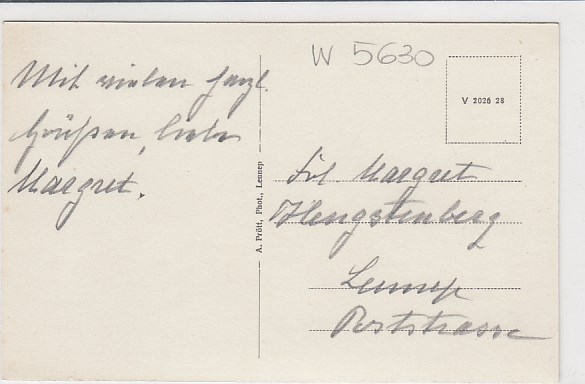 Mit vielen herzl.
Grüßen, liebe
Margret.
W 5630
V 2026 28
A. Prött, Phot., Lennep
Frl. Margret
Hengstenberg
Lennep
Poststrasse